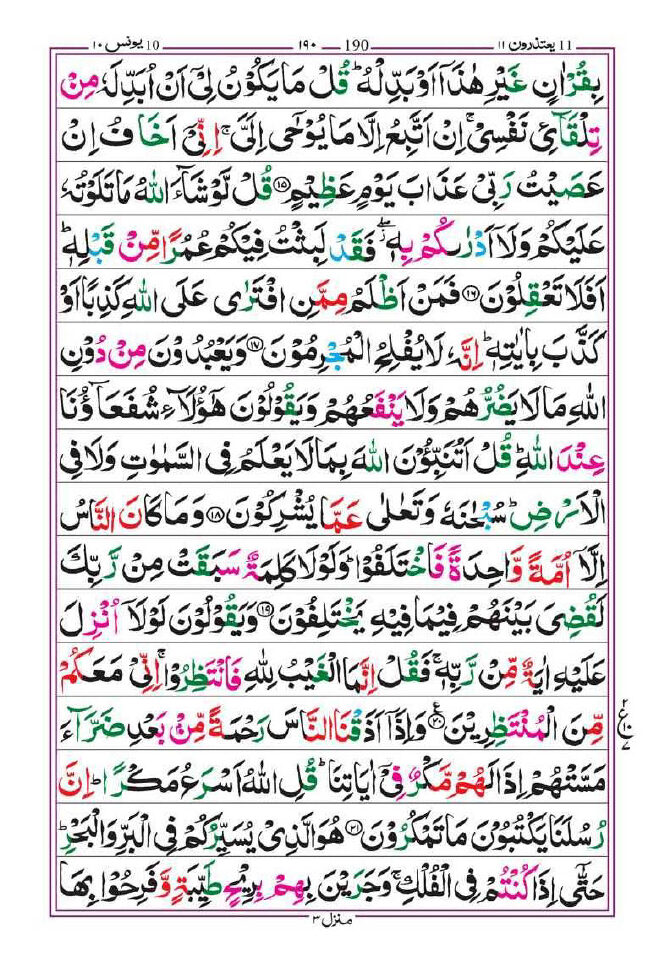 11 یعتذرون ۱۱ 190 ۱۹۰ 10 یونس ۱۰
بِقُرْاٰنٍ غَیْرِ هٰذَاۤ اَوْ بَدِّلْهُ ؕ قُلْ مَا یَكُوْنُ لِیْۤ اَنْ اُبَدِّلَهٗ مِنْ
تِلْقَآئِ نَفْسِیْ ۚ اِنْ اَتَّبِعُ اِلَّا مَا یُوْحٰۤی اِلَیَّ ۚ اِنِّیْۤ اَخَافُ اِنْ
عَصَیْتُ رَبِّیْ عَذَابَ یَوْمٍ عَظِیْمٍ ﴿۱۵﴾ قُلْ لَّوْ شَآءَ اللّٰهُ مَا تَلَوْتُهٗ
عَلَیْكُمْ وَلَاۤ اَدْرٰىكُمْ بِهٖ ۖ٘ فَقَدْ لَبِثْتُ فِیْكُمْ عُمُرًا مِّنْ قَبْلِهٖ ؕ
اَفَلَا تَعْقِلُوْنَ ﴿۱۶﴾ فَمَنْ اَظْلَمُ مِمَّنِ افْتَرٰی عَلَی اللّٰهِ كَذِبًا اَوْ
كَذَّبَ بِاٰیٰتِهٖ ؕ اِنَّهٗ لَا یُفْلِحُ الْمُجْرِمُوْنَ ﴿۱۷﴾ وَیَعْبُدُوْنَ مِنْ دُوْنِ
اللّٰهِ مَا لَا یَضُرُّهُمْ وَلَا یَنْفَعُهُمْ وَیَقُوْلُوْنَ هٰۤؤُلَآءِ شُفَعَآؤُنَا
عِنْدَ اللّٰهِ ؕ قُلْ اَتُنَبِّـُٔوْنَ اللّٰهَ بِمَا لَا یَعْلَمُ فِی السَّمٰوٰتِ وَلَا فِی
الْاَرْضِ ؕ سُبْحٰنَهٗ وَتَعٰلٰی عَمَّا یُشْرِكُوْنَ ﴿۱۸﴾ وَمَا كَانَ النَّاسُ
اِلَّاۤ اُمَّةً وَّاحِدَةً فَاخْتَلَفُوْا ؕ وَلَوْلَا كَلِمَةٌ سَبَقَتْ مِنْ رَّبِّكَ
لَقُضِیَ بَیْنَهُمْ فِیْمَا فِیْهِ یَخْتَلِفُوْنَ ﴿۱۹﴾ وَیَقُوْلُوْنَ لَوْلَاۤ اُنْزِلَ
عَلَیْهِ اٰیَةٌ مِّنْ رَّبِّهٖ ۚ فَقُلْ اِنَّمَا الْغَیْبُ لِلّٰهِ فَانْتَظِرُوْا ۚ اِنِّیْ مَعَكُمْ
مِّنَ الْمُنْتَظِرِیْنَ ﴿۲۰﴾ وَاِذَاۤ اَذَقْنَا النَّاسَ رَحْمَةً مِّنْۢ بَعْدِ ضَرَّآءَ
مَسَّتْهُمْ اِذَا لَهُمْ مَّكْرٌ فِیْۤ اٰیَاتِنَا ؕ قُلِ اللّٰهُ اَسْرَعُ مَكْرًا ؕ اِنَّ
رُسُلَنَا یَكْتُبُوْنَ مَا تَمْكُرُوْنَ ﴿۲۱﴾ هُوَ الَّذِیْ یُسَیِّرُكُمْ فِی الْبَرِّ وَالْبَحْرِ ؕ
حَتّٰۤی اِذَا كُنْتُمْ فِی الْفُلْكِ ۚ وَجَرَیْنَ بِهِمْ بِرِیْحٍ طَیِّبَةٍ وَّفَرِحُوْا بِهَا
منزل ۳